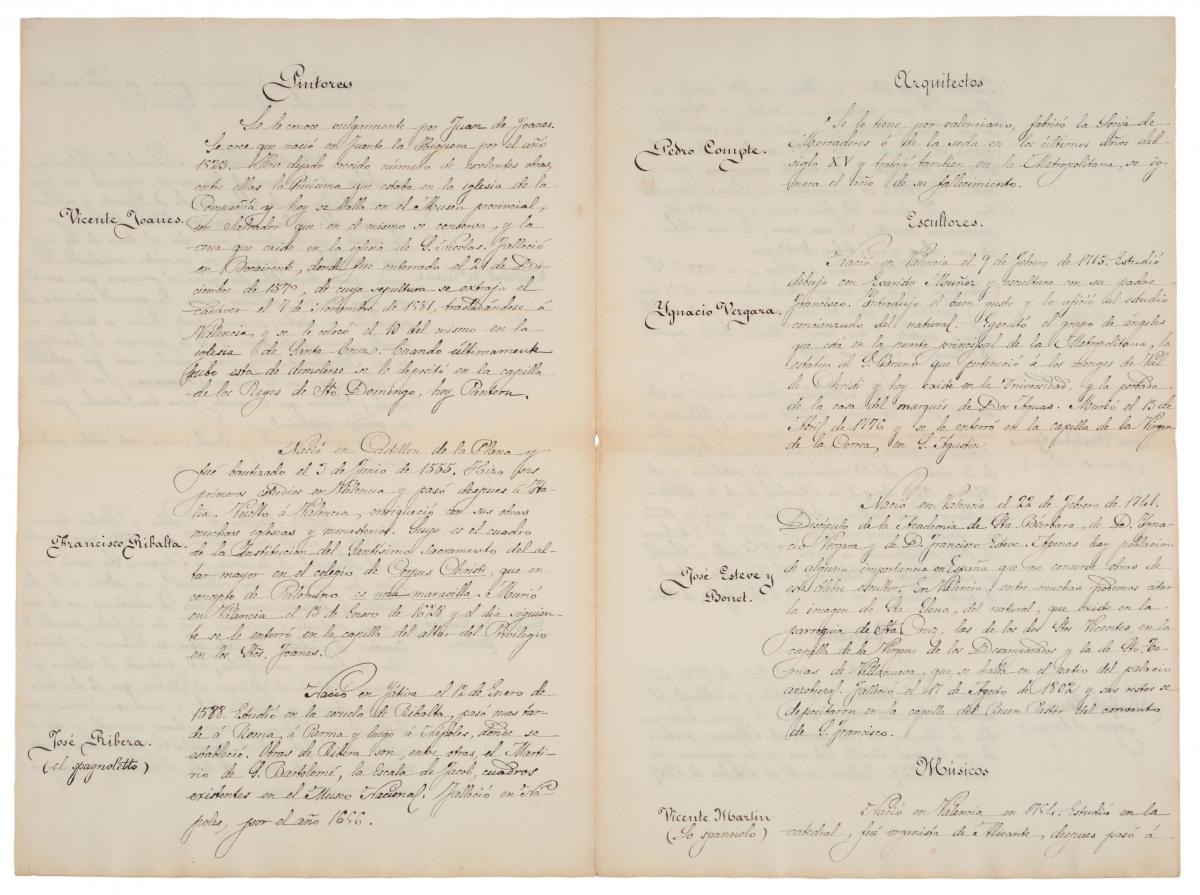 Pintores
Vicente Joanes.
Se le conoce vulgarmente por Juan de Joanes.
Se cree que nació en Fuente la Higuera por el año
1523. Ha dejado crecido número de escelentes obras,
entre ellas la Purísima que estaba en la iglesia de la
Compañía y hoy se halla en el Museo provincial,
un Salvador que en el mismo se conserva, y la
cena que existe en la iglesia de S. Nicolas. Falleció
en Bocairente, donde fué enterrado el 21 de Di-
ciembre de 1579, de cuya sepultura se extrajo el
cadáver el 7 de Noviembre de 1581, trasladándose á
Valencia, y se le colocó el 10 del mismo en la
iglesia de Santa Cruz. Cuando últimamente
hubo esta de demolerse se le depositó en la capilla
de los Reyes de Sto. Domingo, hoy Panteon.
Francisco Ribalta.
Nació en Castellon de la Plana y
fué bautizado el 3 de Junio de 1555. Hizo sus
primeros estudios en Valencia y pasó despues á Ita-
lia. Vuelto á Valencia, enriqueció con sus obras
muchas iglesias y monasterios. Suyo es el cuadro
de la Institucion del Santísimo Sacramento del al-
tar mayor en el colegio de Corpus Christi, que en
concepto de Palomino es una maravilla. Murió
en Valencia el 13 de Enero de 1628 y el dia siguien-
te se le enterró en la capilla del altar del Privilegio
en los Stos. Joanes.
José Ribera.
(el spagnoletto)
Nació en Játiva el 12 de Enero de
1588. Estudió en la escuela de Ribalta, pasó mas tar-
de á Roma, á Parma y luego á Nápoles, donde se
estableció. Obras de Ribera son, entre otras, el Marti-
rio de S. Bartolomé, la Escala de Jacob, cuadros
existentes en el Museo Nacional. Falleció en Ná-
poles, por el año 1656.
Arquitectos
Pedro Compte.
Se le tiene por valenciano, fabricó la Lonja de
Mercaderes ó de la seda en los últimos años del
siglo XV y trabajó tambien en la Metropolitana, se ig-
nora el año de su fallecimiento.
Escultores.
Ygnacio Vergara.
Nació en Valencia el 9 de Febrero de 1715. Estudió
dibujo con Evaristo Muñoz y escultura con su padre
Francisco. Introdujo el buen gusto y la afición al estudio
concienzudo del natural. Egecutó el grupo de ángeles
que está en la puerta principal de la Metropolitana, la
estatua de S. Bruno que perteneció á los monges de Vall
de Christi y hoy existe en la Universidad, y la portada
de la casa del marqués de Dos Aguas. Murió el 13 de
Abril de 1776 y se le enterró en la capilla de la Virgen
de la Correa, en S. Agustin.
José Esteve y
Bonet.
Nació en Valencia el 22 de Febrero de 1741.
Discípulo de la Academia de Sta. Bárbara, de D. Igna-
cio Vergara y de D. Francisco Esteve. Apenas hay poblacion
de alguna importancia en España que no conserve obras de
este célebre escultor. En Valencia, entre muchas podemos citar
la imagen de Sta Elena, del natural, que existe en la
parroquia de Sta Cruz, las de los dos Stos Vicentes, en la
capilla de la Virgen de los Desamparados y la de Sto. To-
mas de Villanueva, que se halla en el patio del palacio
arzobispal. Falleció el 17 de Agosto de 1802 y sus restos se
depositaron en la capilla del Buen Pastor del convento
de S. Francisco.
Músicos
Vicente Martin
(Lo spannolo)
Nació en Valencia en 1754. Estudió en la
catedral, fué organista de Alicante, despues pasó á